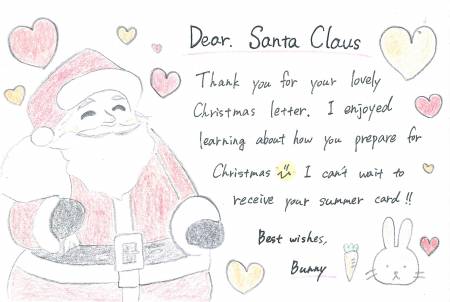 Dear. Santa Claus
Thank you for your lovely
Christmas letter. I enjoyed
learning about how you prepare for
Christmas I can't wait to
receive your summer card!!
Best wishes,
Bunny